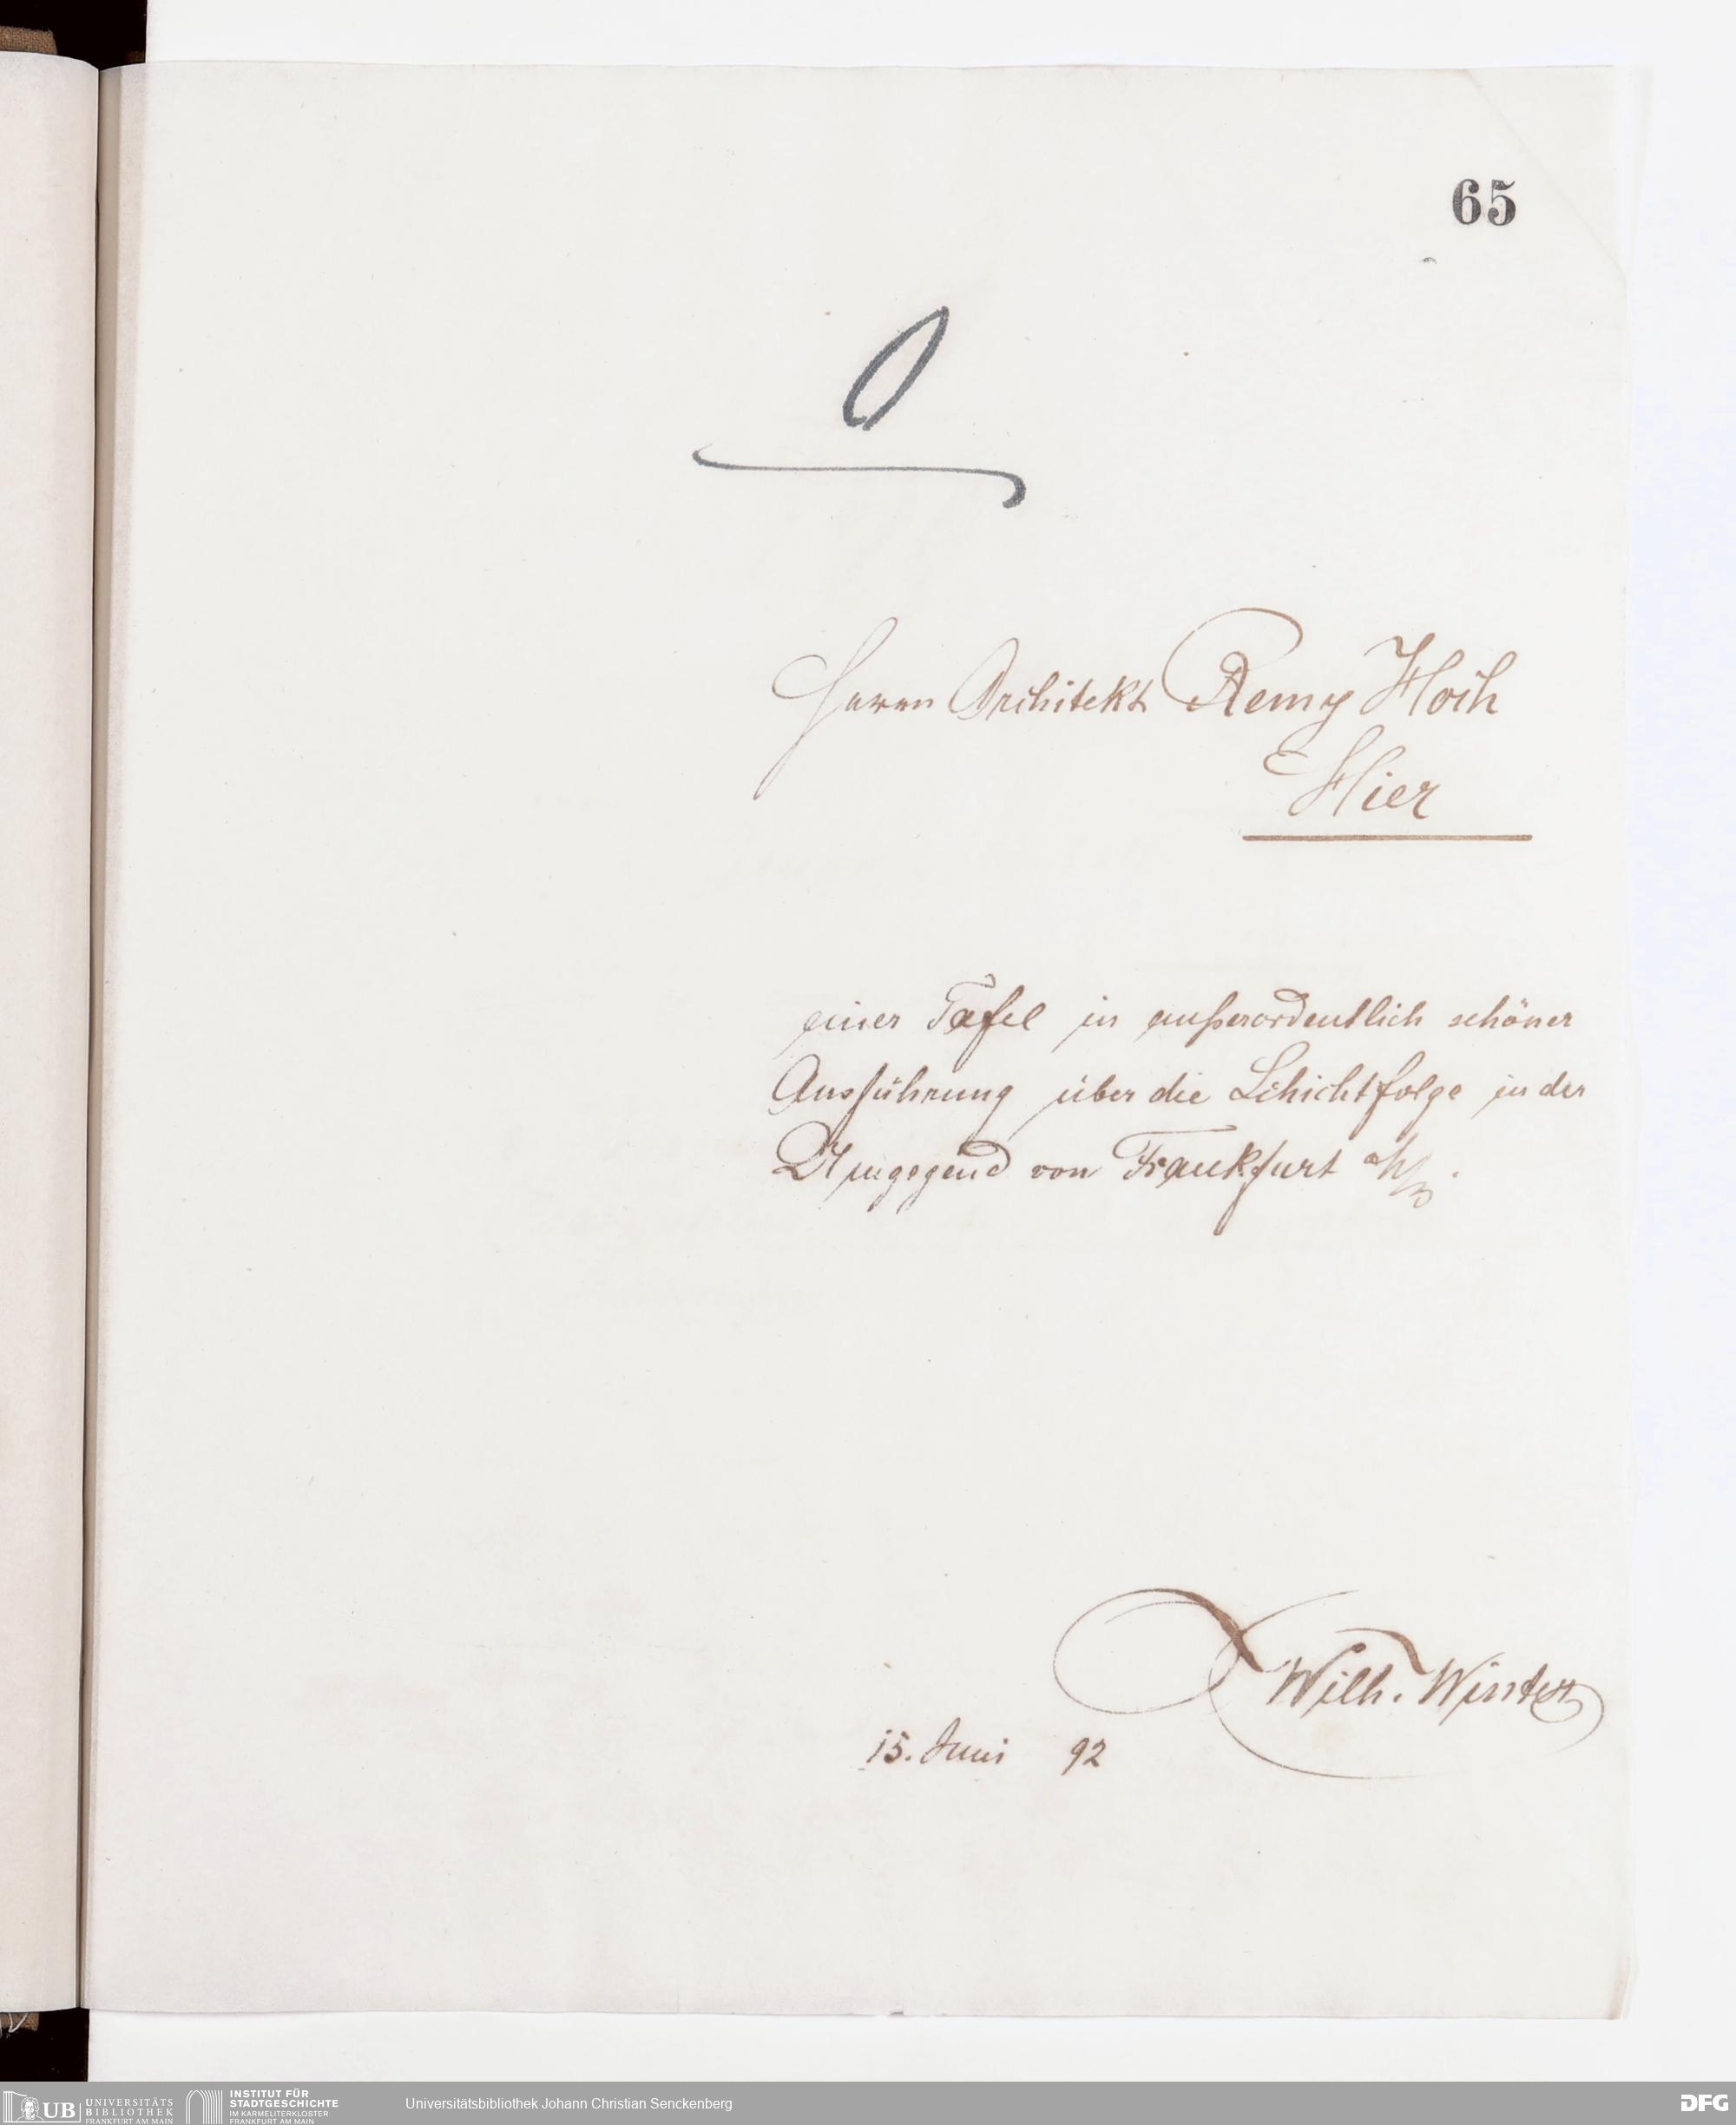 65
0
Herrn Architekt Remy Hoch
Hier
einer Tafel in außerordentlich schöner
Ausführung über die Schichtfolge in der
Umgegend von Frankfurt a/M.
Wilh. Winter
15. Juni 92
UB UNIVERSITÄTS
BIBLIOTHEK
FRANKFURT AM MAIN
INSTITUT FÜR
STADTGESCHICHTE
IM KARMELITERKLOSTER
FRANKFURT AM MAIN
Universitätsbibliothek Johann Christian Senckenberg
DFG